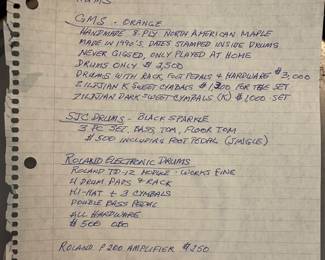 DRUMS
GMS - ORANGE
HANDMADE 8-PLY NORTH AMERICAN MAPLE
MADE IN 1990'S, DATES STAMPED INSIDE DRUMS
NEVER GIGGED, ONLY PLAYED AT HOME
DRUMS ONLY $2,500
DRUMS WITH RACK, FOOT PEDALS & HARDWARE $3,000
ZILDJIAN K SWEET CYMBALS $1,300 FOR THE SET
ZILDJIAN DARK SWEET CYMBALS (K) $1,000 SET
SJC DRUMS - BLACK SPARKLE
3 PC SET, BASS TOM, FLOOR TOM
$500 INCLUDING FOOT PEDAL (SINGLE)
ROLAND ELECTRONIC DRUMS
ROLAND TD-12 MODULE - WORKS FINE
4 DRUM PADS & RACK
HI-HAT + 3 CYMBALS
DOUBLE BASS PEDAL
ALL HARDWARE
$500 OBO
ROLAND P200 AMPLIFIER $250